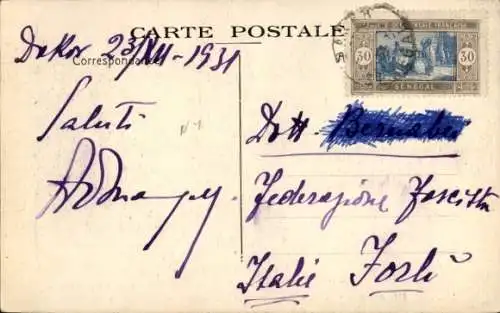 CARTE POSTALE
Correspondance
Dakar 23/VII - 1931
Saluti
AFRIQUE OCCIDENTALE FRANÇAISE
30 30
SÉNÉGAL
Dott Bernabei
Federazione Fascista
Italie Forlì